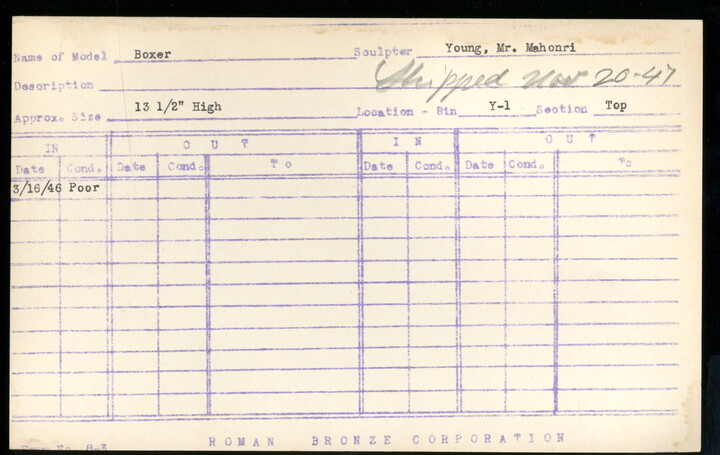 Name of Model Boxer Sculpter Young, Mr. Mahonri
Description Shipped Nov 20-47
Approx. Size 13 1/2" High Location - Bin Y-1 Section Top
IN OUT IN OUT
Date Cond. Date Cond. TO Date Cond. Date Cond. To
3/16/46 Poor
Form No. 8-3
ROMAN BRONZE CORPORATION